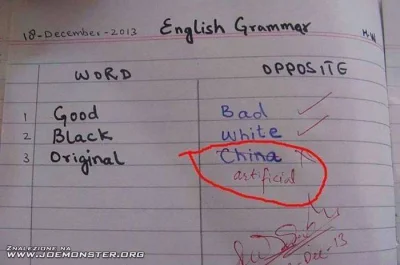 18-December-2013 English Grammar H.W
WORD OPPOSITE
1 Good Bad
2 Black White
3 Original China
artificial
ZNALEZIONE NA
WWW.JOEMONSTER.ORG